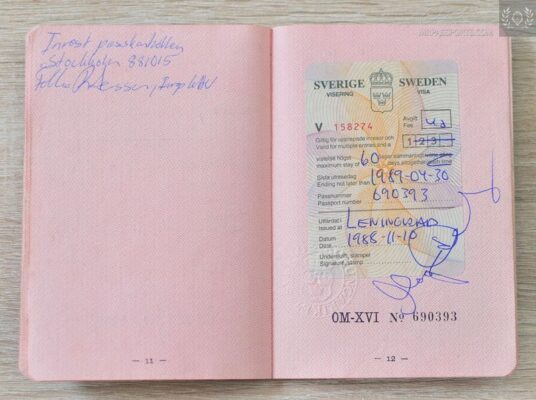 Stockholm 881015
- 11 -
MRPASSPORTS.COM
SVERIGE SWEDEN
VISERING VISA
V 158274
Avgift
Fee
Gäller för upprepade inresor och
Valid for multiple entries and a
1-2-3
vistelse högst 60
maximum stay of days, altogether
Sista utresedag 1989-04-30
Ending not later than
Passnummer 690393
Passport number
Utfärdat i LENINGRAD
Issued at
Datum 1988-11-10
Date
Underskrift, stämpel
Signature, stamp
OM-XVI № 690393
- 12 -